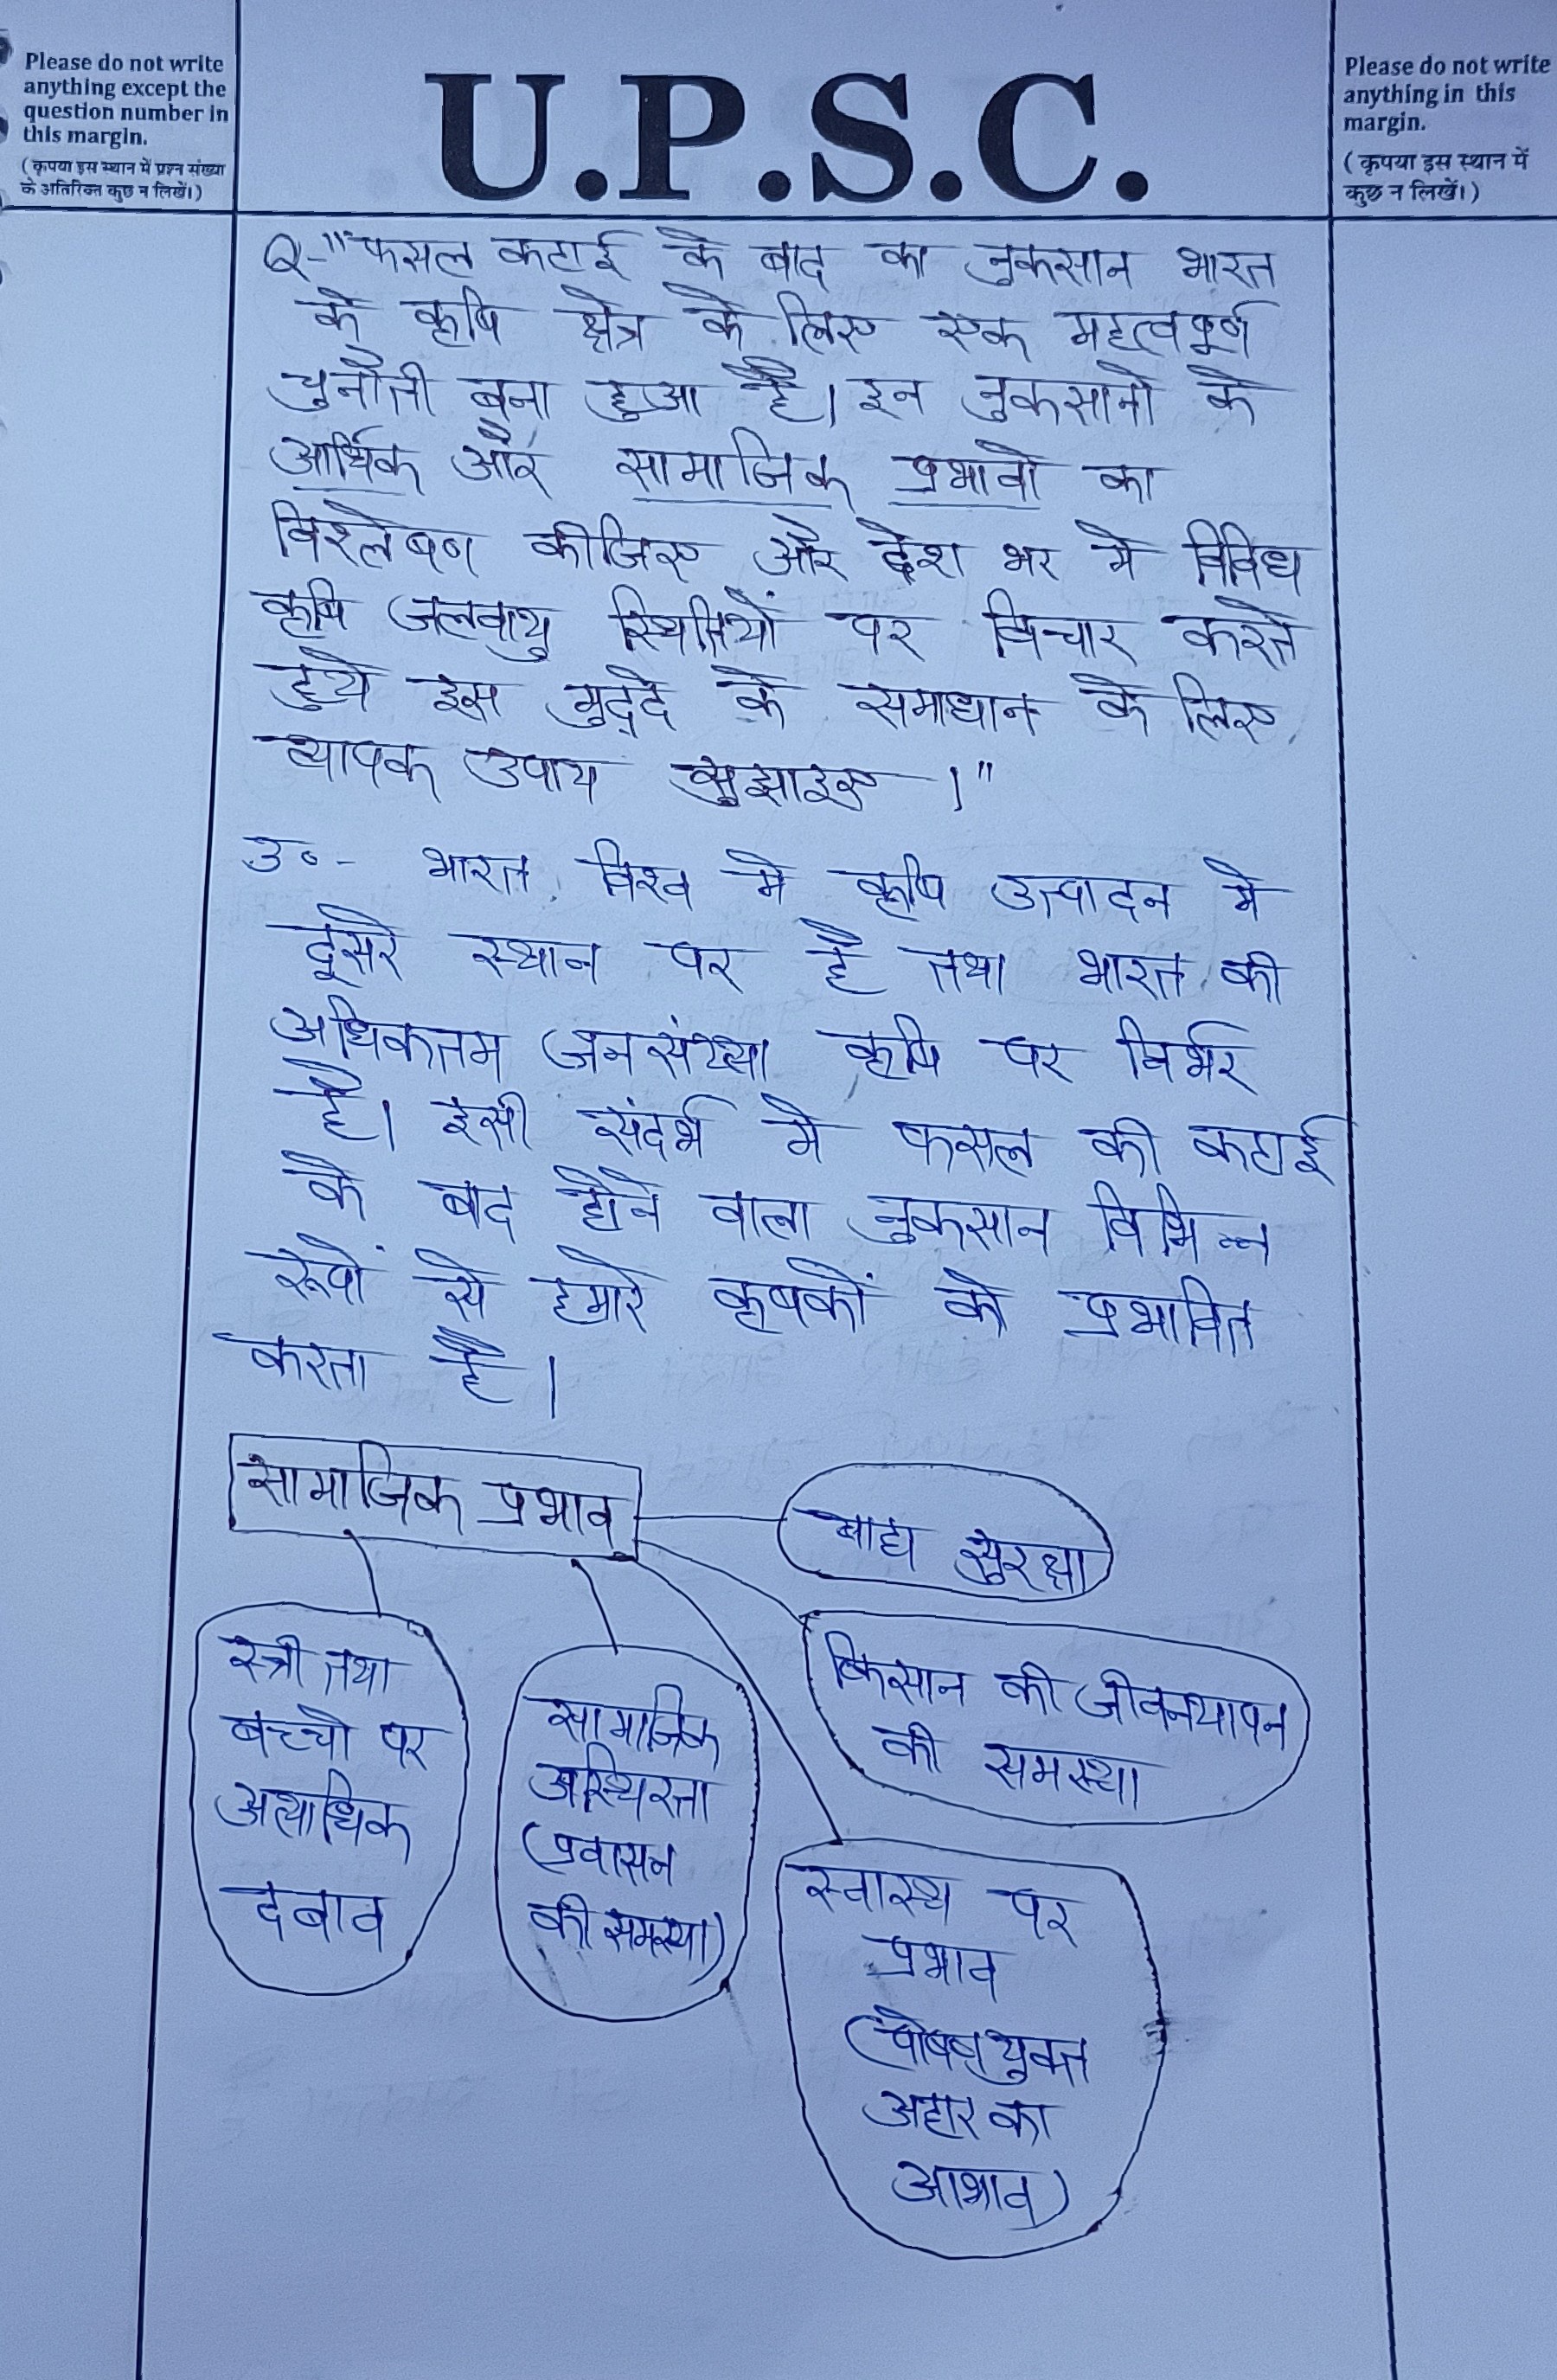 Please do not write
anything except the
question number in
this margin.
(कृपया इस स्थान में प्रश्न संख्या
के अतिरिक्त कुछ न लिखें।)
U.P.S.C.
Please do not write
anything in this
margin.
(कृपया इस स्थान में
कुछ न लिखें।)
Q-"फसल कटाई के बाद का नुकसान भारत
के कृषि क्षेत्र के लिए एक महत्वपूर्ण
चुनौती बना हुआ है। इन नुकसानो के
आर्थिक और सामाजिक प्रभावो का
विश्लेषण कीजिए और देश भर मे विविध
कृषि जलवायु स्थितियों पर विचार करते
हुये इस मुद्दे के समाधान के लिए
व्यापक उपाय सुझाइए।"
उ०- भारत विश्व मे कृषि उत्पादन मे
दूसरे स्थान पर है तथा भारत की
अधिकतम जनसंख्या कृषि पर निर्भर
है। इसी संदर्भ मे फसल की कटाई
के बाद होने वाला नुकसान विभिन्न
रूपों से हमारे कृषकों को प्रभावित
करता है।
सामाजिक प्रभाव
खाद्य सुरक्षा
स्त्री तथा
बच्चो पर
अत्याधिक
दबाव
सामाजिक
अस्थिरता
(प्रवासन
की समस्या)
किसान की जीवनयापन
की समस्या
स्वास्थ्य पर
प्रभाव
(पोषणयुक्त
अहार का
आभाव)